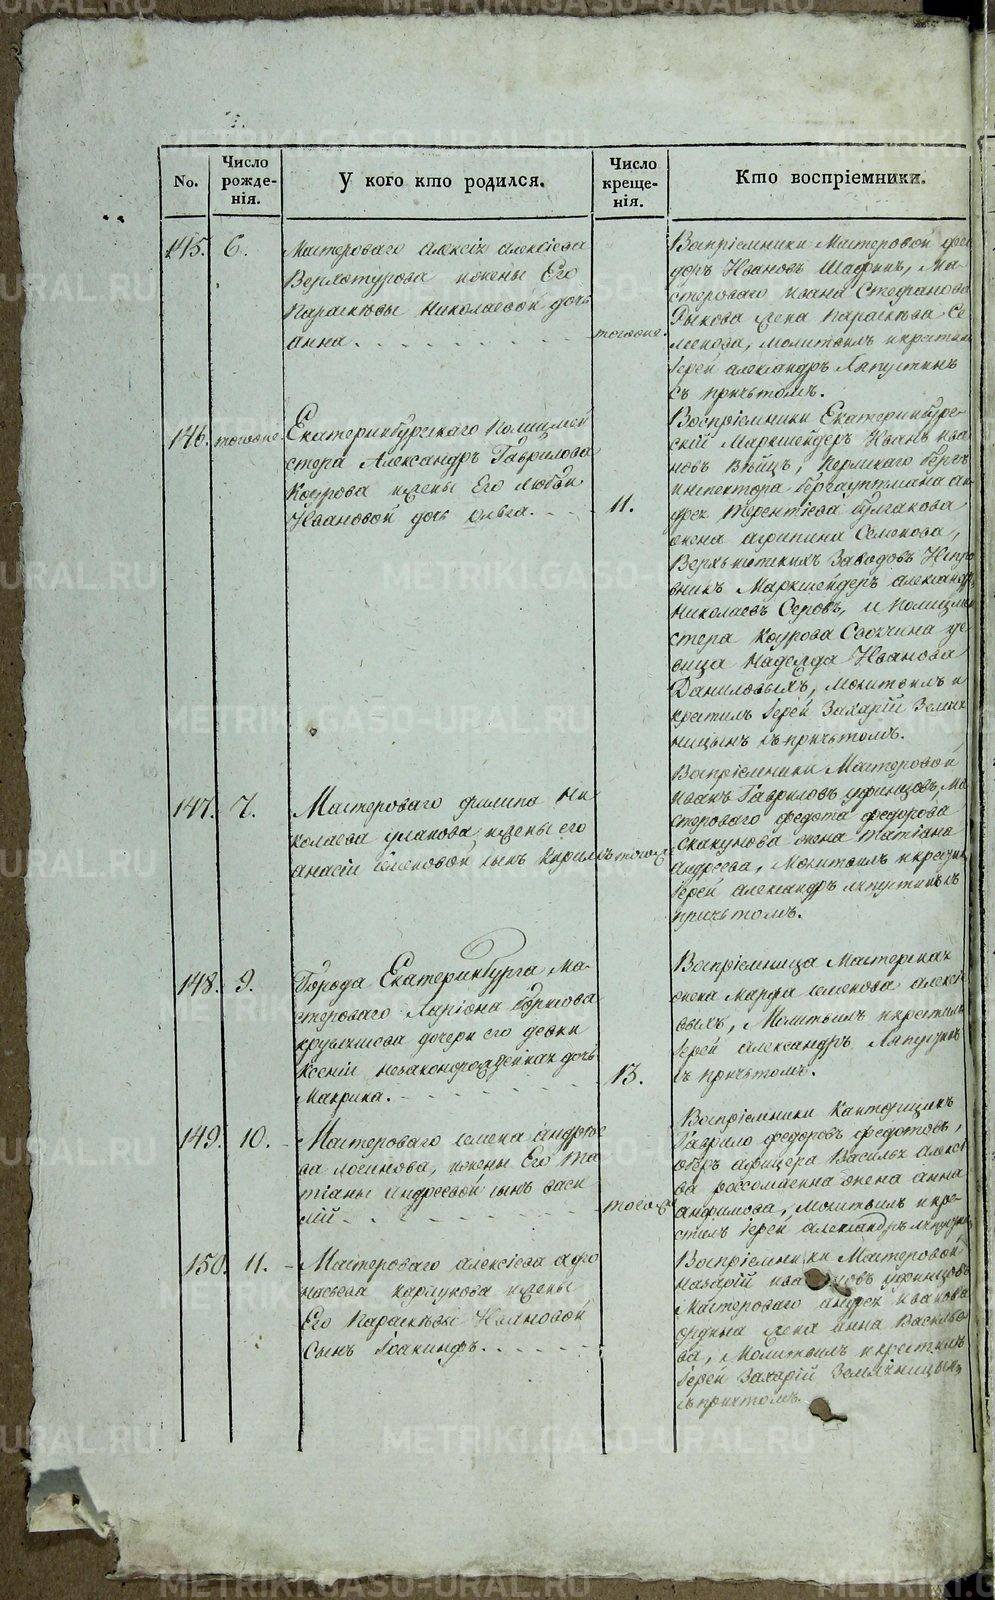 No.
Число
рожде-
нія.
У кого кто родился.
Число
креще-
нія.
Кто воспріемники.
145. 6.
Мастероваго Алексѣя Алексѣева
Верхотурова и жены Его
Параскѣвы Николаевой дочь
Анна
тогоже.
Воспріемники Мастеровой Фео
доръ Ивановъ Шафинъ, Ма-
стероваго Ивана Стефанова
Рыкова жена Параскѣва Се
менова, молитвилъ и крестил
Іерей Александръ Ляпустинъ
съ причьтомъ.
146. тогоже
Екатеринбургскаго Полицмей
стера Александръ Гаврилова
Коурова и жены Его Любви
Ивановой дочь Ольга.
11.
Воспріемники Екатеринбург-
скій Маркшейдеръ Иванъ Ива
новъ Вейцъ, Пермскаго Бергъ
инспектора Бергауптмана Ан-
дрея Терентіева Булгакова
жена Агрипина Семенова,
Верхъисетскихъ Заводовъ Испра
вникъ Маркшейдеръ Александръ
Николаевъ Серовъ, и Полицмей
стера Коурова Своячина дѣ
вица Надежда Иванова
Даниловыхъ, молитвилъ и
крестилъ Іерей Захарій Земля
ницынъ съ причьтомъ.
147. 7.
Мастероваго Филипа Ни
колаева Улакова, и жены его
Анасіи Семеновой сынъ Кирилъ
тогоже
Воспріемники Мастеровой
Иванъ Гавриловъ Уфинцовъ, Ма
стероваго Федота Федорова
Скакунова жена Татіана
Андреева, Молитвилъ и крестил
Іерей Александръ Ляпустинъ съ
причьтомъ.
148. 9.
Города Екатеринбурга Ма-
стероваго Ларіона Борисова
Круглешова дочери его девки
Ксеніи незаконорожденная дочь
Маврика.
13.
Воспріемница Мастерская
жена Марфа Семенова Алексѣ
евыхъ, Молитвилъ и крестилъ
Іерей Александръ Ляпустинъ
съ причьтомъ.
149. 10.
Мастероваго Семена Андрѣе
ва Логинова, и жены Его Та
тіаны Андреевой сынъ Васи
лій
тогоже
Воспріемники Канторщикъ
Гаврило Федоровъ Федотовъ,
Обѣръ афицера Василья Алексѣ
ва Россомагина жена Анна
Анфимова, Молитвилъ и кре-
стилъ Іерей Александръ Ляпустин
150. 11.
Мастероваго Алексѣева Афо
насьева Карпукова и жены
Его Параскѣвы Ивановой
Сынъ Іоакинфъ.
Воспріемники Мастеровой
Назарій Ивановъ Уфинцовъ
Мастероваго Андрея Иванова
Ордина жена Анна Василье
ва, Молитвилъ и крестилъ
Іерей Захарій Земляницынъ
съ причтомъ.